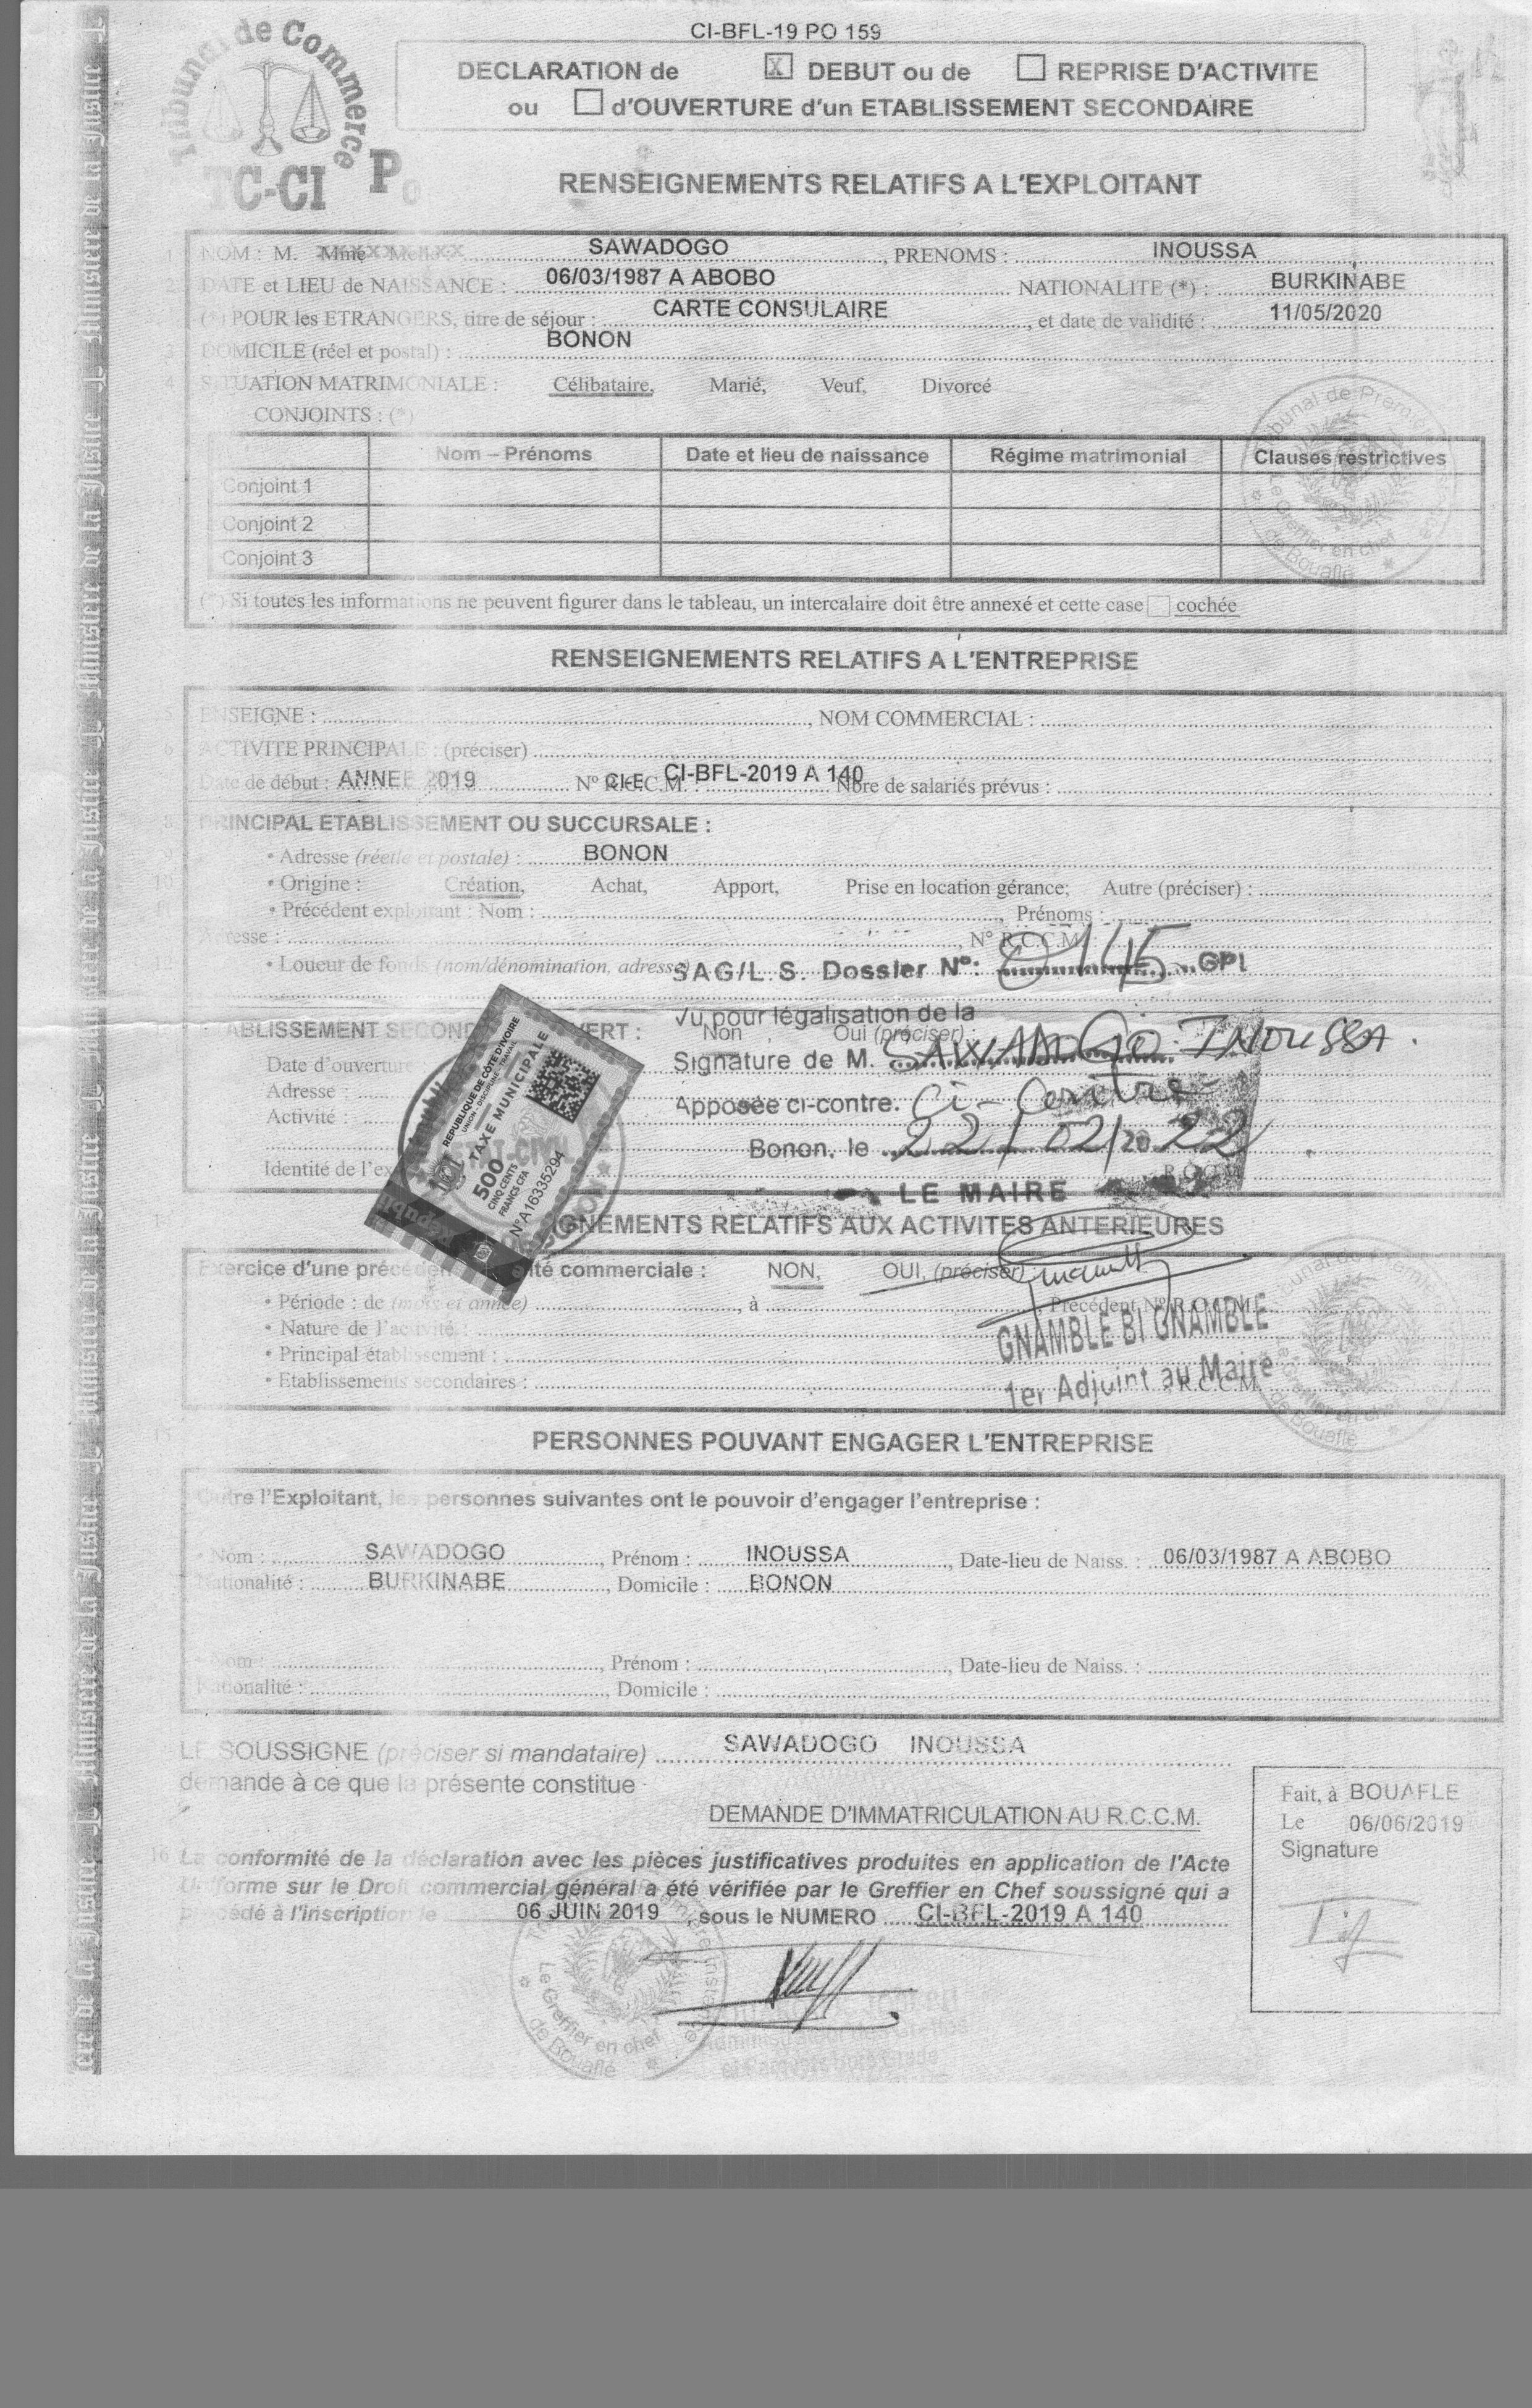 CI-BFL-19 PO 159
Tribunal de Commerce
TC-CI
DECLARATION de X DEBUT ou de REPRISE D'ACTIVITE
ou d'OUVERTURE d'un ETABLISSEMENT SECONDAIRE
RENSEIGNEMENTS RELATIFS A L'EXPLOITANT
1 NOM : M. Mme SAWADOGO, PRENOMS : INOUSSA
2 DATE et LIEU de NAISSANCE : 06/03/1987 A ABOBO NATIONALITE (*) : BURKINABE
(*) POUR les ETRANGERS, titre de séjour : CARTE CONSULAIRE, et date de validité : 11/05/2020
3 DOMICILE (réel et postal) : BONON
4 SITUATION MATRIMONIALE : Célibataire, Marié, Veuf, Divorcé
CONJOINTS : (*)
Nom – Prénoms Date et lieu de naissance Régime matrimonial Clauses restrictives
Conjoint 1
Conjoint 2
Conjoint 3
(*) Si toutes les informations ne peuvent figurer dans le tableau, un intercalaire doit être annexé et cette case cochée
RENSEIGNEMENTS RELATIFS A L'ENTREPRISE
5 ENSEIGNE : , NOM COMMERCIAL :
6 ACTIVITE PRINCIPALE : (préciser)
Date de début : ANNEE 2019 N° R.C.C.M. : CI-BFL-2019 A 140 Nbre de salariés prévus :
8 PRINCIPAL ETABLISSEMENT OU SUCCURSALE :
9 • Adresse (réelle et postale) : BONON
10 • Origine : Création, Achat, Apport, Prise en location gérance; Autre (préciser) :
11 • Précédent exploitant : Nom : , Prénoms :
Adresse : , N° R.C.C.M. :
12 • Loueur de fonds (nom/dénomination, adresse)
SAG/L.S. Dossier N°: 0145 GPI
Vu pour légalisation de la
ETABLISSEMENT SECONDAIRE OUVERT : Non , Oui (préciser) :
Signature de M. SAWADOGO INOUSSA.
Date d'ouverture
Adresse :
Apposée ci-contre. Ci-Contre
Activité :
Bonon, le 22/02/2022
Identité de l'ex R.C.C.M.
LE MAIRE
REPUBLIQUE DE CÔTE D'IVOIRE
UNION - DISCIPLINE - TRAVAIL
TAXE MUNICIPALE
500
CINQ CENTS
FRANCS CFA
N° A16335294
RENSEIGNEMENTS RELATIFS AUX ACTIVITES ANTERIEURES
Exercice d'une précédente activité commerciale : NON, OUI, (préciser)
• Période : de (mois et année) , à , Précédent N° R.C.C.M. :
• Nature de l'activité :
• Principal établissement :
• Etablissements secondaires : R.C.C.M.
GNAMBLE BI GNAMBLE
1er Adjoint au Maire
PERSONNES POUVANT ENGAGER L'ENTREPRISE
Outre l'Exploitant, les personnes suivantes ont le pouvoir d'engager l'entreprise :
• Nom : SAWADOGO, Prénom : INOUSSA, Date-lieu de Naiss. : 06/03/1987 A ABOBO
Nationalité : BURKINABE, Domicile : BONON
• Nom : , Prénom : , Date-lieu de Naiss. :
Nationalité : , Domicile :
LE SOUSSIGNE (préciser si mandataire) SAWADOGO INOUSSA
demande à ce que la présente constitue
DEMANDE D'IMMATRICULATION AU R.C.C.M.
Fait, à BOUAFLE
Le 06/06/2019
Signature
16 La conformité de la déclaration avec les pièces justificatives produites en application de l'Acte
Uniforme sur le Droit commercial général a été vérifiée par le Greffier en Chef soussigné qui a
procédé à l'inscription le 06 JUIN 2019, sous le NUMERO CI-BFL-2019 A 140
Le Greffier en chef
de Bouaflé